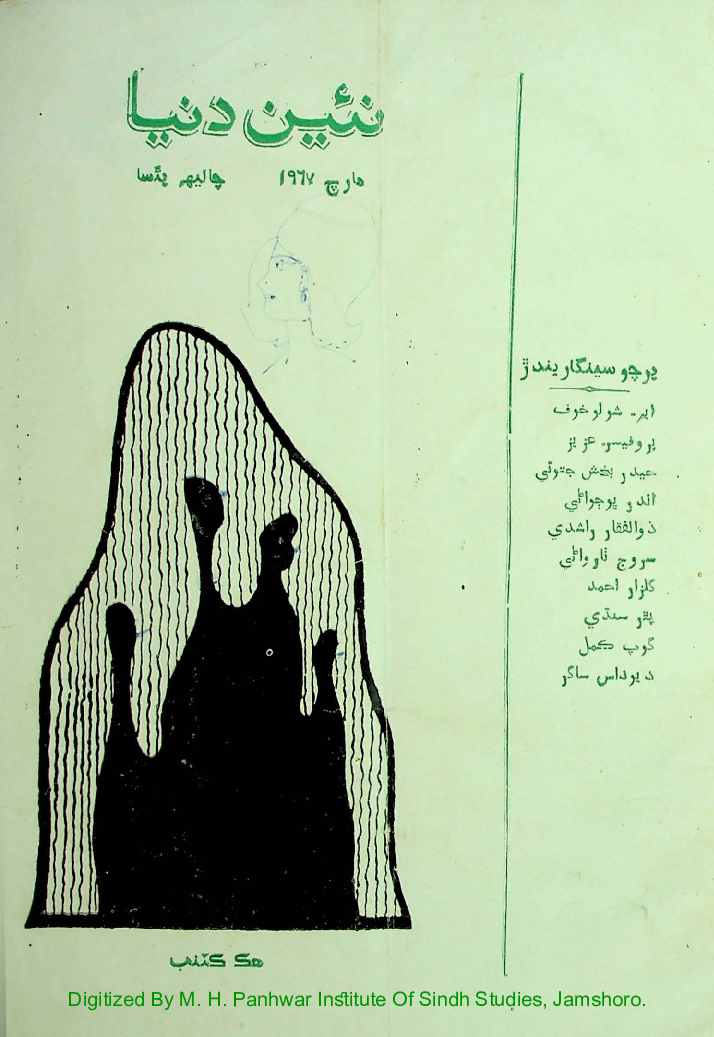 نئين دنيا
مارچ ١٩٦٧ چاليهہ پئسا
پرچو سينگاريندڙ
ايم۔ شولوخوف
پروفيسر عزيز
حيدر بخش جتوئي
اندر ڀوجواڻي
ذوالفقار راشدي
سروج نارواڻي
گلزار احمد
پٿر سنڌي
گوپ ڪمل
ديوداس ساگر
هڪ ڪٽنب
Digitized By M. H. Panhwar Institute Of Sindh Studies, Jamshoro.